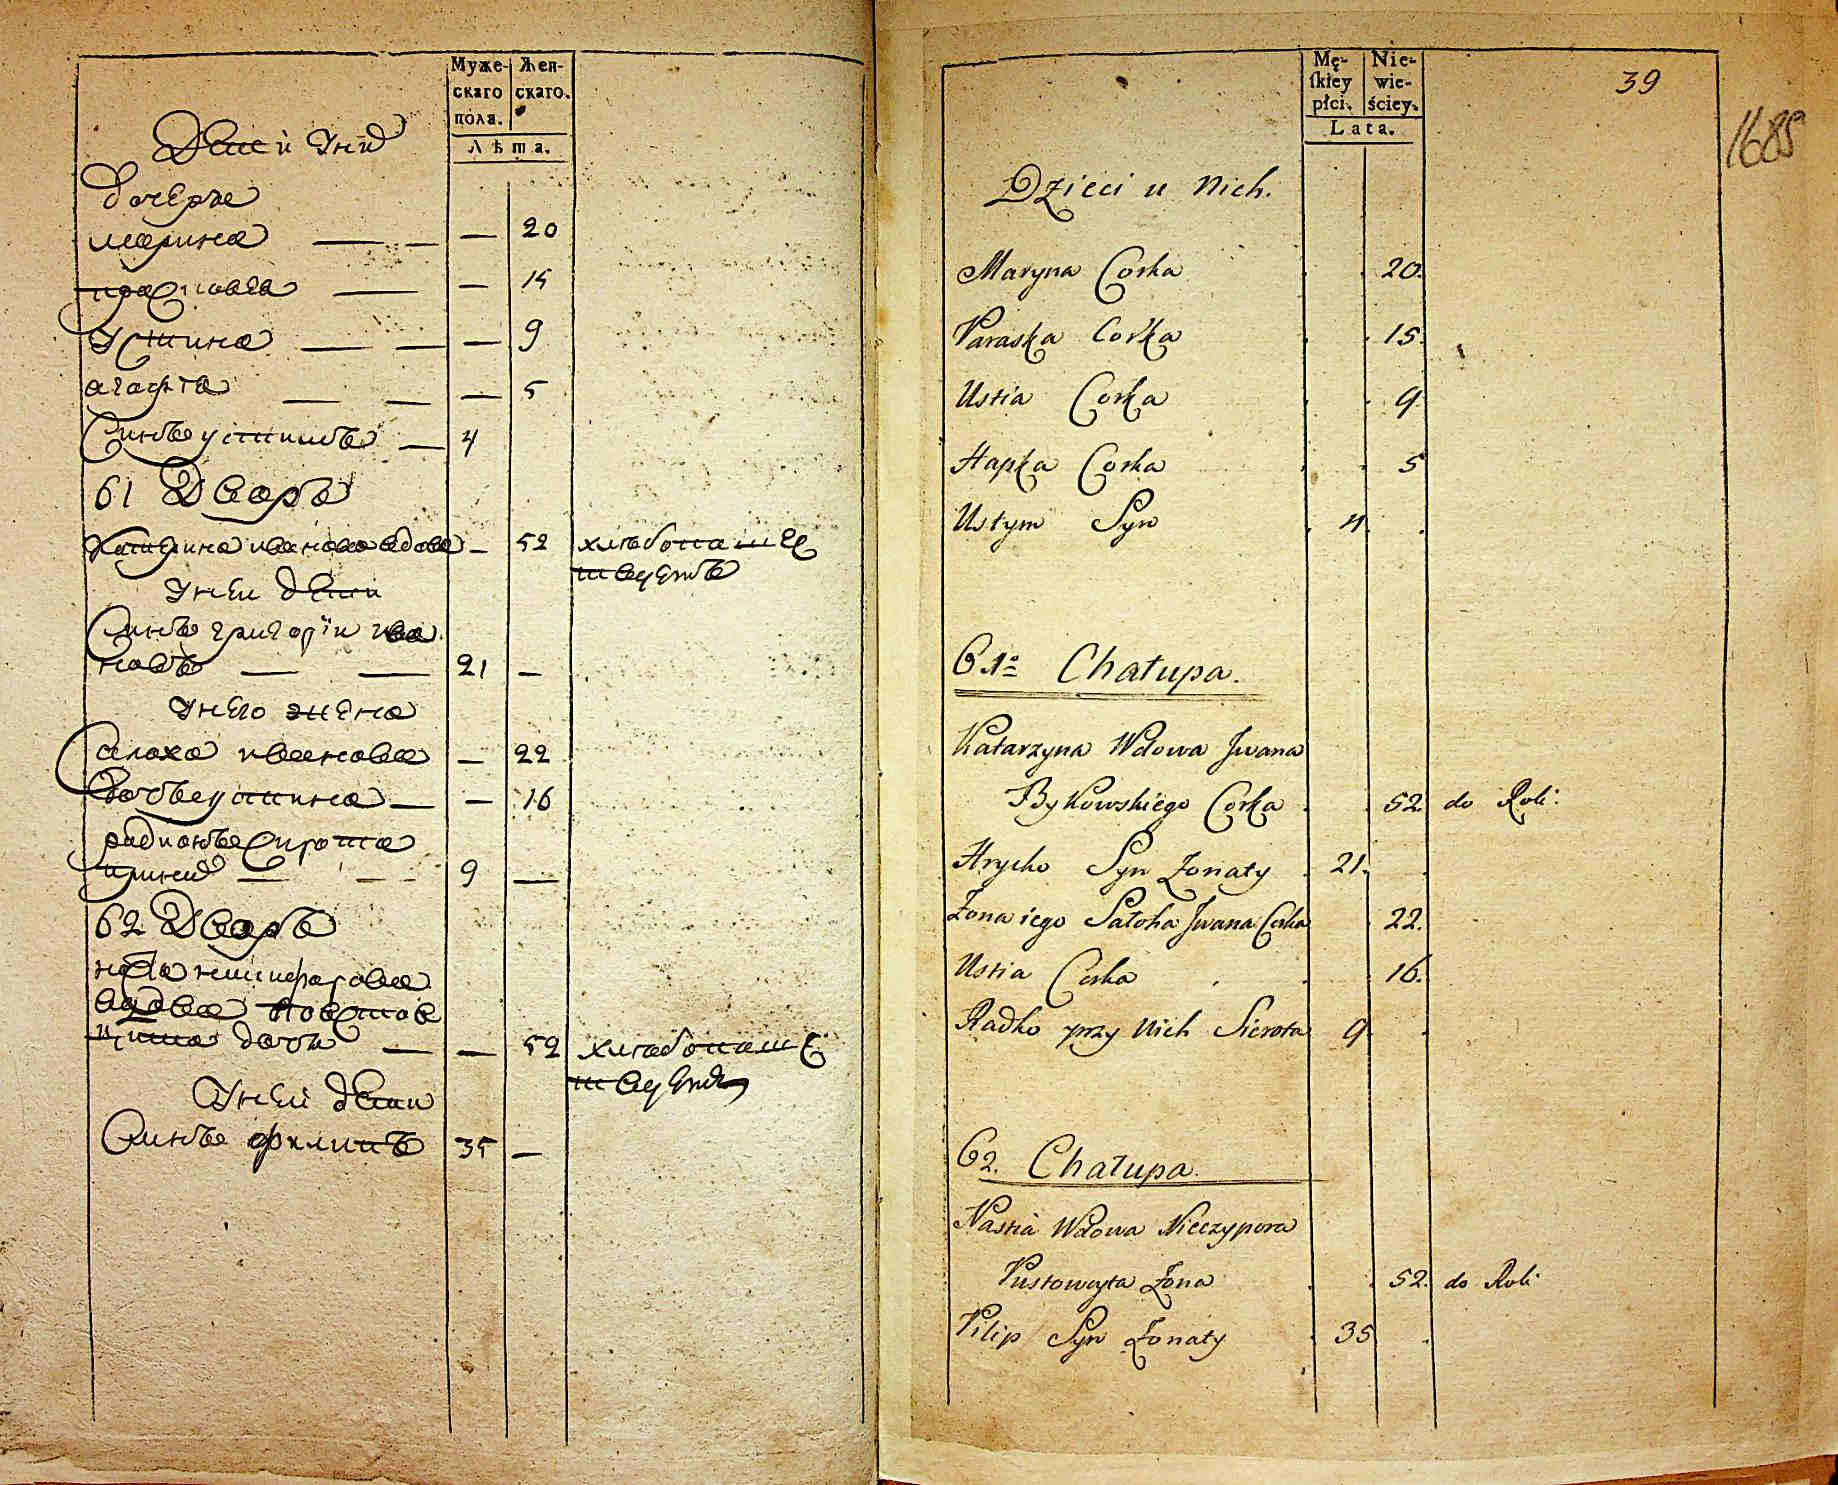 Муже-
скаго
пола.
Жен-
скаго.
Лѣта.
Дети у них
дочерѣ
марина — — — 20
прасковя — — 15
устина — — — 9
агафія — — — 5
Синъ устимъ — 4
61 Дворъ
Катерина иванова вдова — 52 хлѣбопашес
твуетъ
у неи дети
Синъ григорїи ива
новъ — — 21 —
у него жена
Салоха иванова — 22
Дочь устина — — 16
радионъ Сирота
при них — — 9 —
62 Дворъ
настя ничипорова
вдова
дочь — — 52 хлѣбопаше
твуетъ
у неи дети
Синъ филипъ 35 —
Mę-
skiey
płci.
Nie-
wie-
ściey.
Lata.
39
1685
Dzieci u Nich.
Maryna Corka 20.
Paraska Corka 15.
Ustia Corka 9
Hapka Corka 5
Ustym Syn 4
61º Chałupa.
Katarzyna Wdowa Jwana
Bykowskiego Corka 52. do Roli.
Hrycko Syn Żonaty 21.
Żona iego Sałoha Jwana Corka 22.
Ustia Corka 16.
Radko przy Nich Sierota 9
62. Chałupa.
Nastia Wdowa Nieczypora
Pustowoyta Żona 52. do Roli
Pilip Syn Żonaty 35